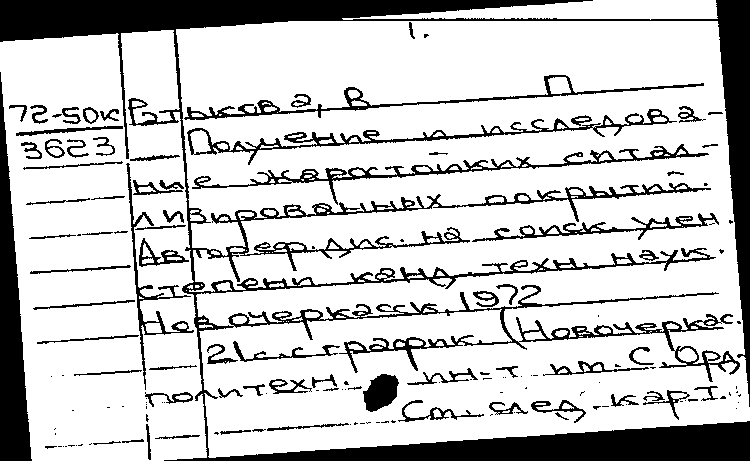 1.
72-50к Ратькова, В П
3623 Получение и исследова-
ние жаростойких ситал-
лизированных покрытий.
Автореф. дис. на соиск. учен.
степени канд. техн. наук.
Новочеркасск, 1972
21с. с график. (Новочеркас.
политехн. ин-т им. С. Орд-
См. след. карт.